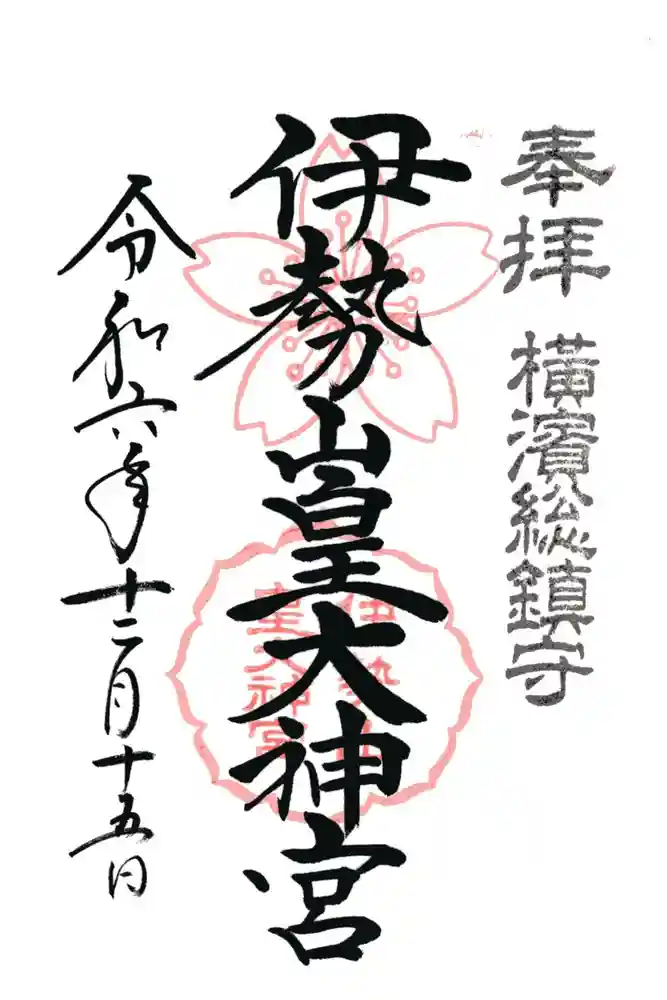 奉拝 横濱総鎮守
伊勢山皇大神宮
伊勢山
皇大神宮
令和六年十二月十五日